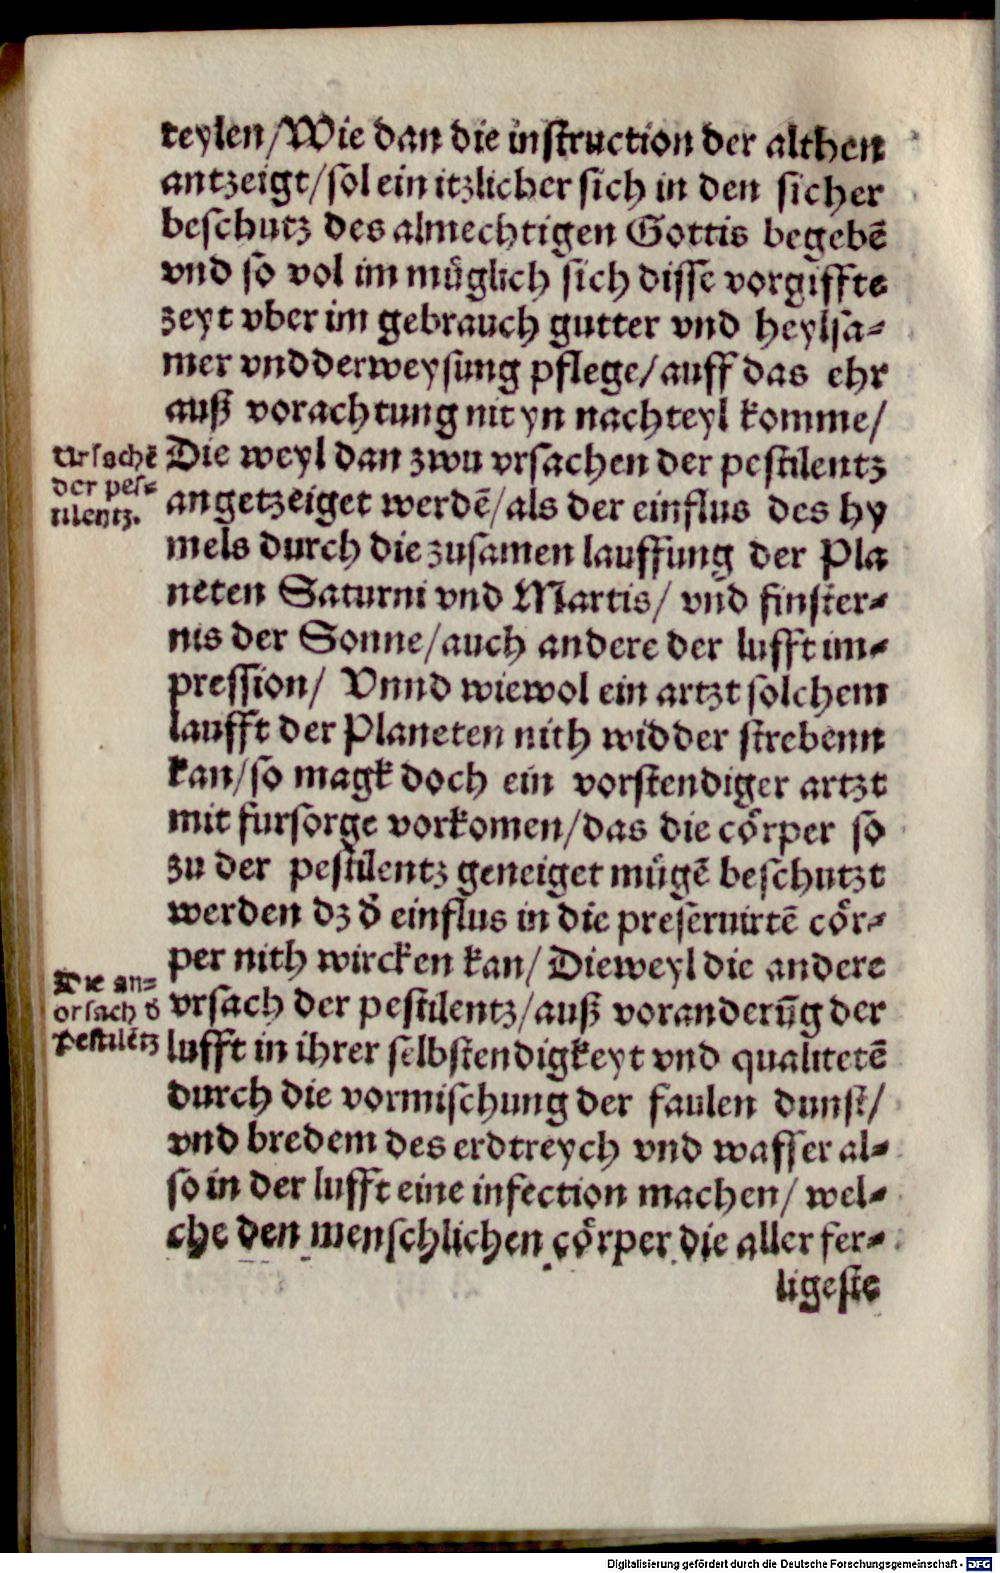 teylen/Wie dan die instruction der althen
antzeigt/sol ein itzlicher sich in den sicher
beschutz des almechtigen Gottis begebē
vnd so vol im muͤglich sich disse vorgiffte
zeyt vber im gebrauch gutter vnd heylsa⸗
mer vnd derweysung pflege/auff das ehr
auß vorachtung nit yn nachteyl komme/
Ursachē
der pes⸗
tilentz.
Die weyl dan zwu vrsachen der pestilentz
angetzeiget werdē/als der einflus des hy
mels durch die zusamen lauffung der Pla
neten Saturni vnd Martis/ vnd finster⸗
nis der Sonne/auch andere der lufft im⸗
pression/ Vnnd wiewol ein artzt solchem
laufft der Planeten nith widder strebenn
kan/so magk doch ein vorstendiger artzt
mit fursorge vorkomen/das die coͤrper so
zu der pestilentz geneiget muͤgē beschutzt
werden dz d̄ einflus in die preseruirtē coͤr⸗
per nith wircken kan/ Dieweyl die andere
Die an⸗
orsach d̄
Pestilētz
vrsach der pestilentz/auß voranderūg der
lufft in ihrer selbstendigkeyt vnd qualitetē
durch die vormischung der faulen dunst/
vnd bredem des erdtreych vnd wasser al⸗
so in der lufft eine infection machen/ wel⸗
che den menschlichen coͤrper die aller fer⸗
ligeste
Digitalisierung gefördert durch die Deutsche Forschungsgemeinschaft - DFG